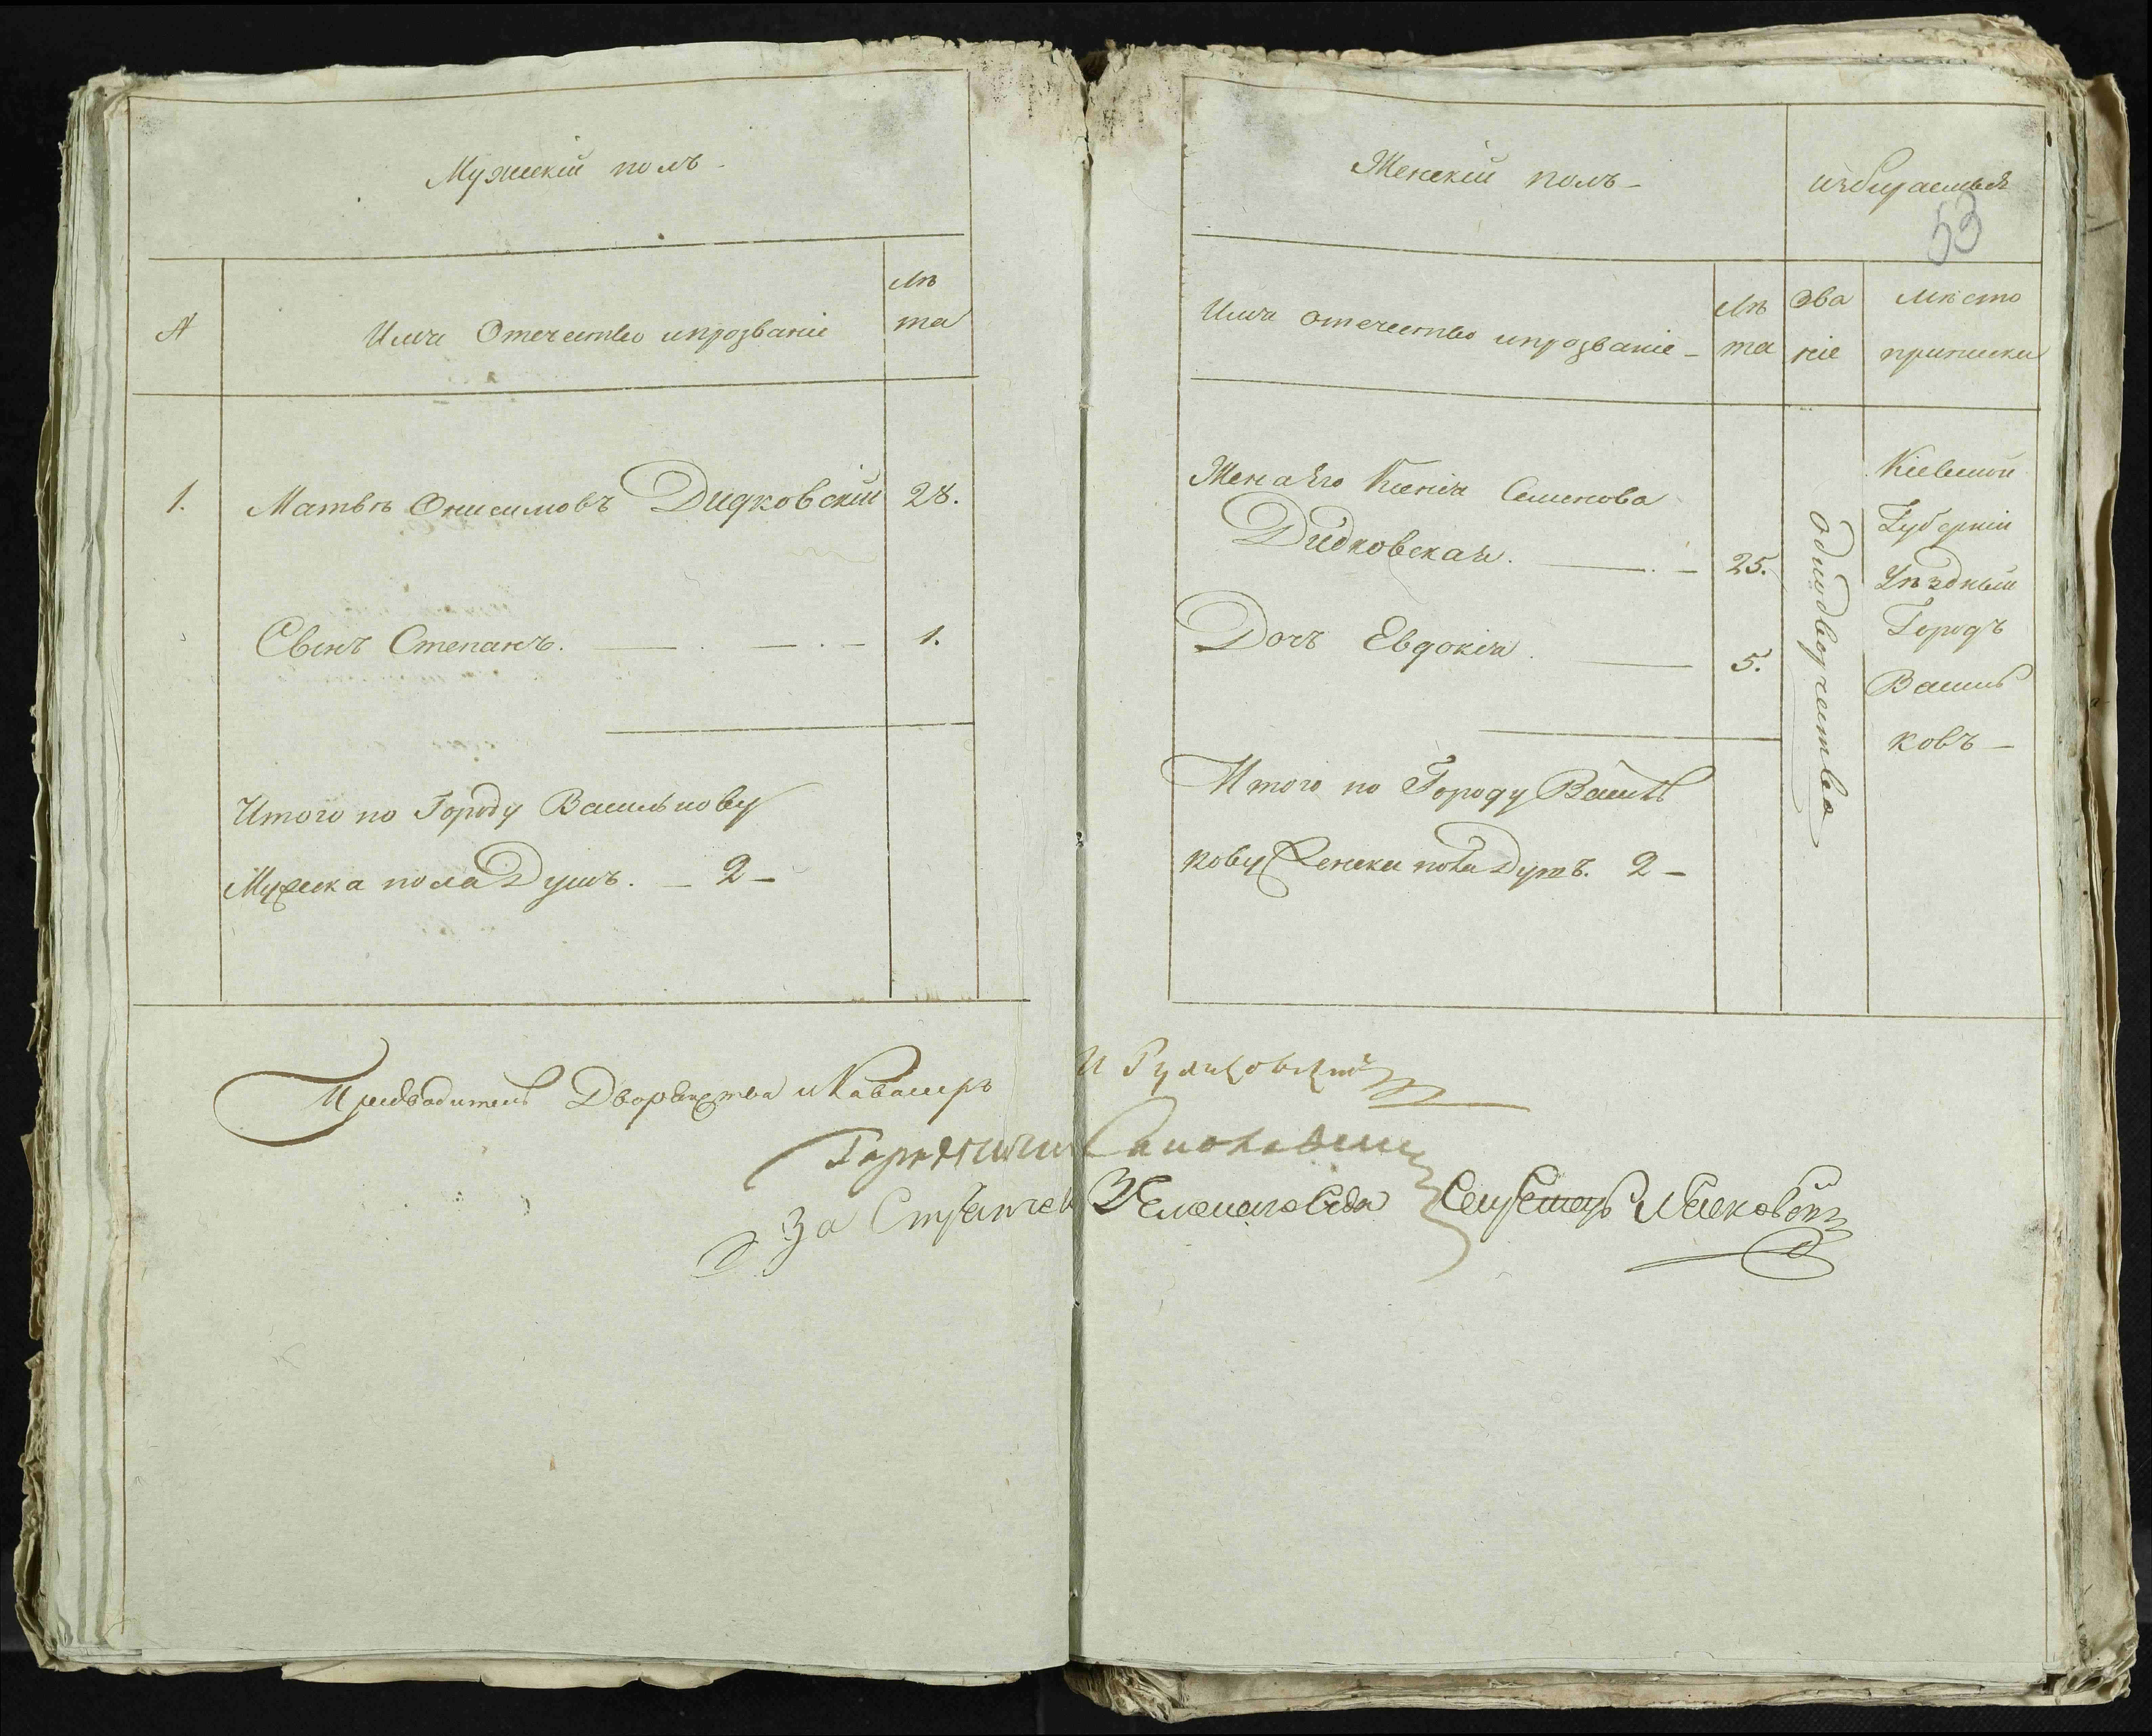 Мужескій полъ -
N
Имя Отечество ипрозваніе
лѣ
та
1.
Матвѣ Онисимовъ Дидковскій 28.
Сынъ Степанъ. 1.
Итого по Городу Василькову
Мужеска пола Душъ. - 2 -
Женскій полъ -
избираемыя
53
Имя отечество ипрозваніе -
лѣ
та
Зва
ніе
мѣсто
приписки
Жена Его Ксенія Семенова
Дидковская. - 25.
Дочъ Евдокія. 5.
Однодворчество
Кіевской
Губерніи
Уѣздный
Городъ
Василь
ковъ -
Итого по Городу Василь
кову Женска пола Душъ. 2 -
Предводитель Дворянства и Кавалеръ
И Руликовскій
Городничій
За Стряпчего Секретарь